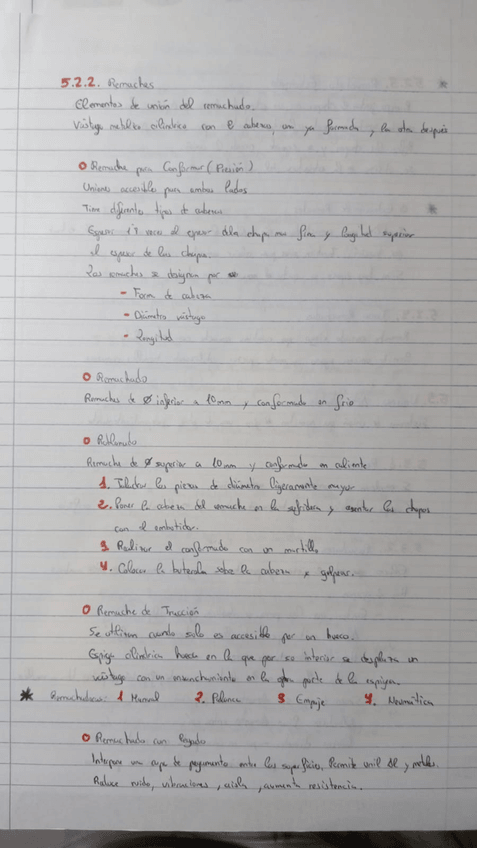 5.2.2. Remaches
Elementos de unión del remachado.
Vástago metálico cilíndrico con 2 cabezas, una ya formada, la otra después
Remache para Conformar (Presión)
Uniones accesibles para ambos lados
Tiene diferentes tipos de cabezas
Espesor 1'5 veces el espesor de la chapa mas fina y longitud superior
al espesor de las chapas.
Los remaches se designan por
- Forma de cabeza
- Diámetro vástago
- Longitud
Remachado
Remaches de Ø inferior a 10mm y conformado en frío
Roblonado
Remache de Ø superior a 10mm y conformado en caliente
1. Taladrar las piezas de diámetro ligeramente mayor
2. Poner la cabeza del remache en la sufridera y asentar las chapas
con el embutidor.
3 Realizar el conformado con un martillo
4. Colocar la buterola sobre la cabeza y golpear.
Remache de Tracción
Se utilizan cuando solo es accesible por un hueco.
Espiga cilíndrica hueca en la que por su interior se desplaza un
vástago con un ensanchamiento en la parte de la espiga.
* Remachadoras: 1 Manual 2. Palanca 3 Empuje 4. Neumática
Remachado con Pegado
Interpone una capa de pegamento entre las superficies. Permite unir y
Reduce ruido, vibraciones, aisla, aumenta resistencia.